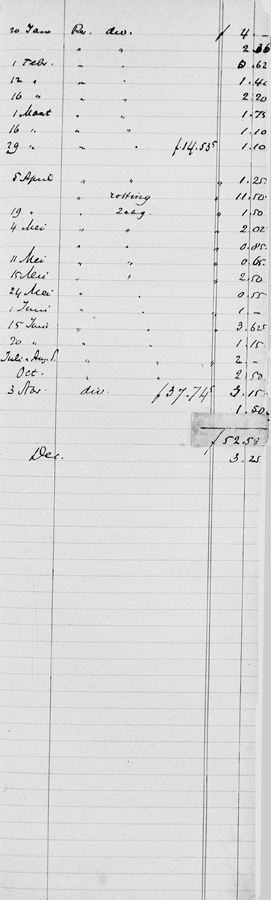 20 Jan Re. div. f 4.—
" " 2.36
1 Febr. " " 0.62
12 " " " 1.40
16 " " " 2.20
1 Maart " " 1.75
16 " " " 1.10
29 " " " f 14.53⁵ 1.10
5 April " " 1.25
" rotting " 11.50
19 " " " 1.50
4 Mei " " 2.02
" " 0.85
11 Mei " " 0.65
15 Mei " " 2.50
24 Mei " " 0.55
1 Juni " " 1.—
15 Juni " " 3.62⁵
20 " " " 1.15
Juli " Aug. " " 2.—
Oct. " " 2.50
3 Nov. div. f 37.74⁵ 3.15
1.50
f 52.53
Dec. 3.25